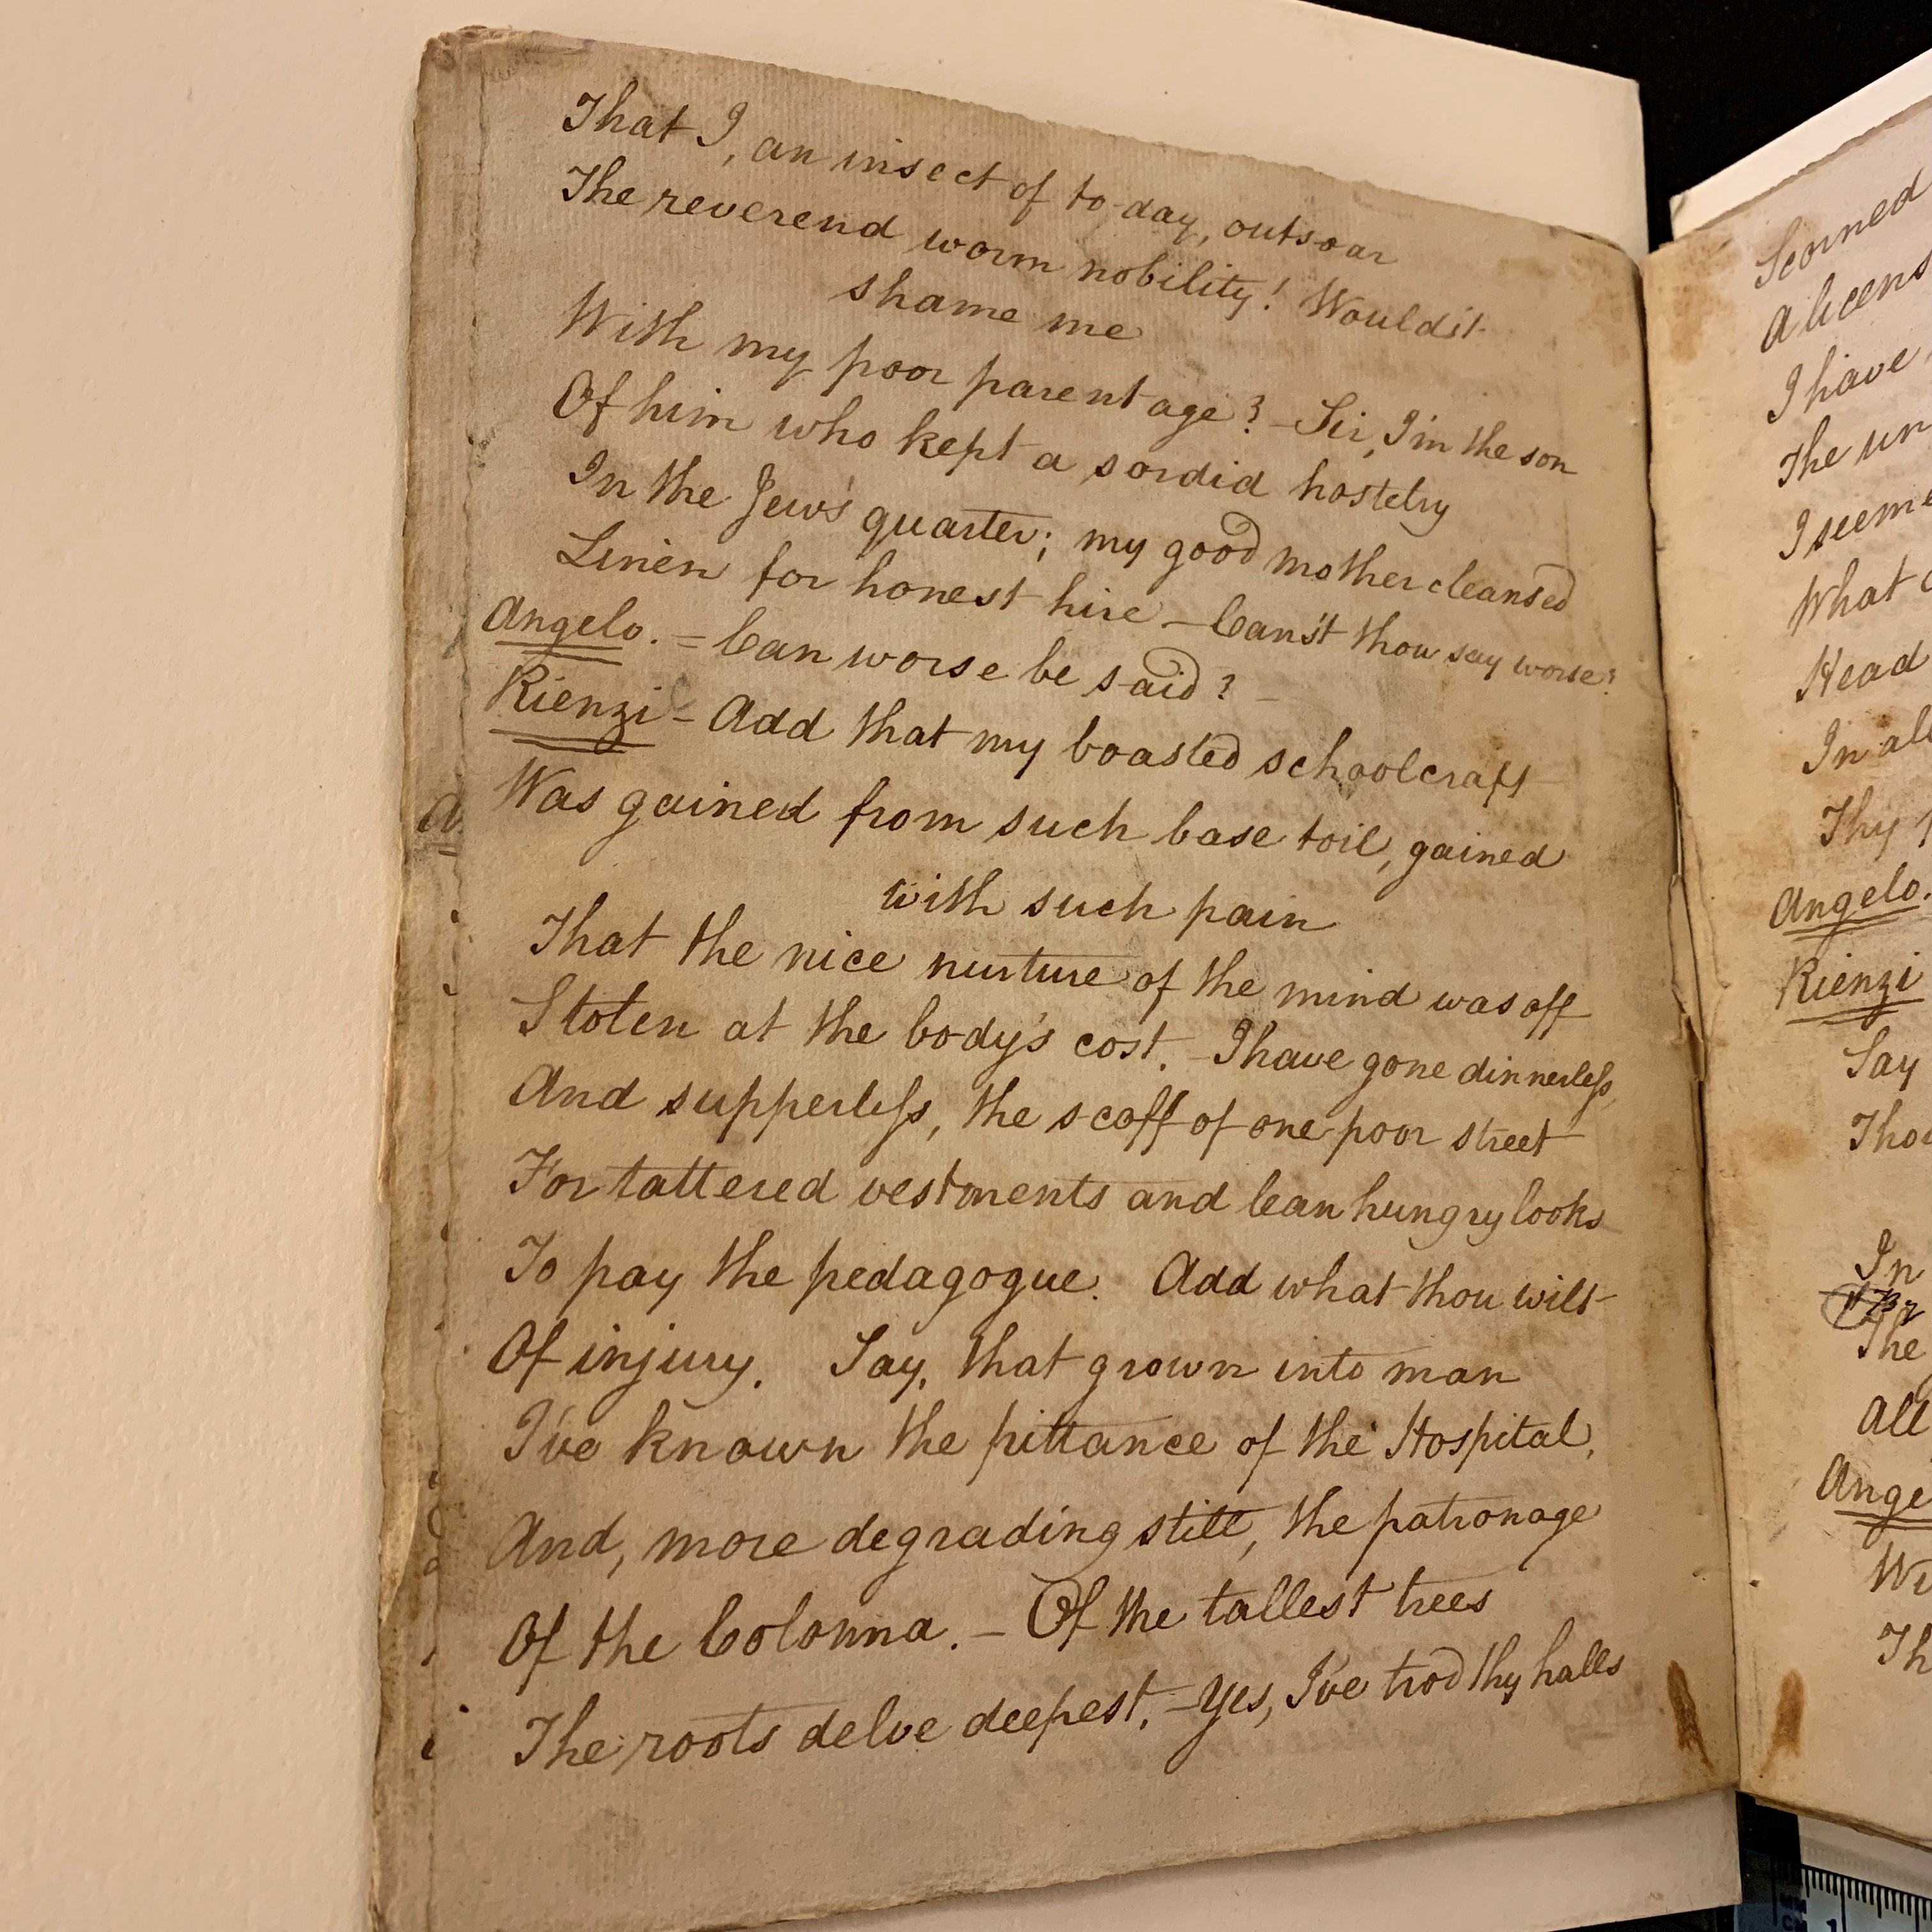 That I, an insect of to-day, outsoar
The reverend worm nobility! Wouldst
shame me
With my poor parentage? – Sir, I'm the son
Of him who kept a sordid hostelry
In the Jew's quarter; my good mother cleansed
Linen for honest hire – Canst thou say worse?
Angelo. = Can worse be said? –
Rienzi – Add that my boasted schoolcraft
Was gained from such base toil, gained
with such pain
That the nice nurture of the mind was oft
Stolen at the body's cost. – I have gone dinnerless,
And supperless, the scoff of one poor street
For tattered vestments and lean hungry looks
To pay the pedagogue. Add what thou wilt
Of injury. Say, that grown into man
I've known the pittance of the Hospital,
And, more degrading still, the patronage
Of the Colonna. – Of the tallest trees
The roots delve deepest. – Yes, I've trod thy halls
Scorned
I have
The un
What
Head
In all
Thy
Angelo.
Rienzi
Say
In
The
All
Ange
Th